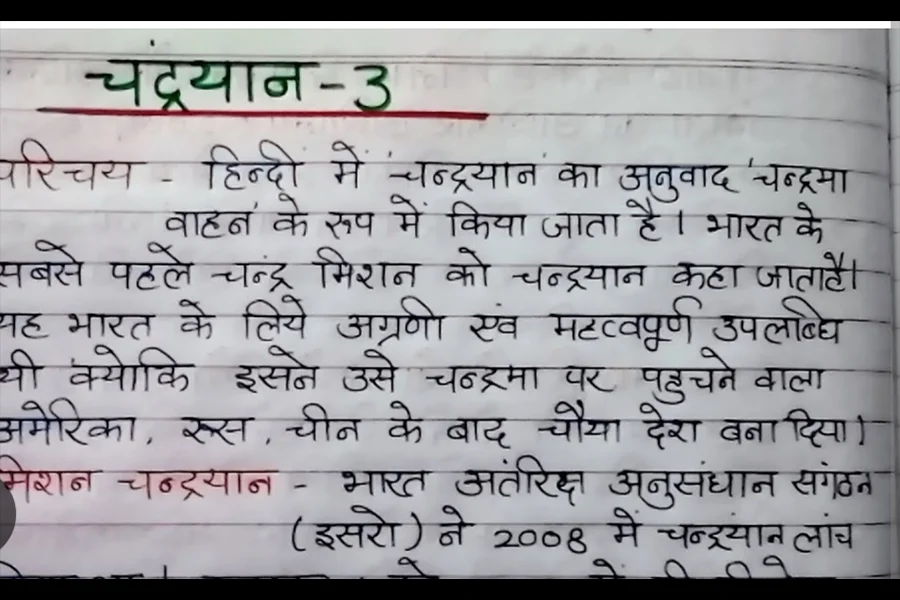 चंद्रयान - 3
परिचय - हिन्दी में 'चन्द्रयान' का अनुवाद 'चन्द्रमा
वाहन' के रूप में किया जाता है। भारत के
सबसे पहले चन्द्र मिशन को चन्द्रयान कहा जाता है।
यह भारत के लिये अग्रणी एंव महत्वपूर्ण उपलब्धि
थी क्योकि इसने उसे चन्द्रमा पर पहुचने वाला
अमेरिका, रूस, चीन के बाद चौथा देश बना दिया।
मिशन चन्द्रयान - भारत अंतरिक्ष अनुसंधान संगठन
(इसरो) ने 2008 में चन्द्रयान लांच